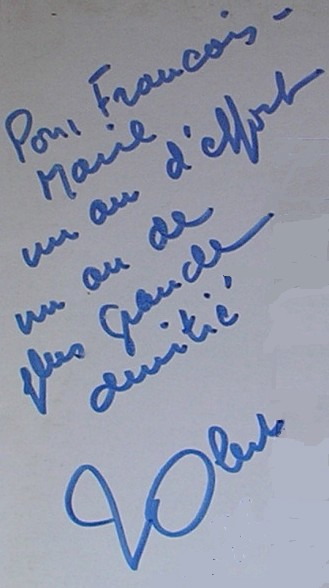 Pour François-
Marie
un an d'effort
un an de
plus grande
amitié